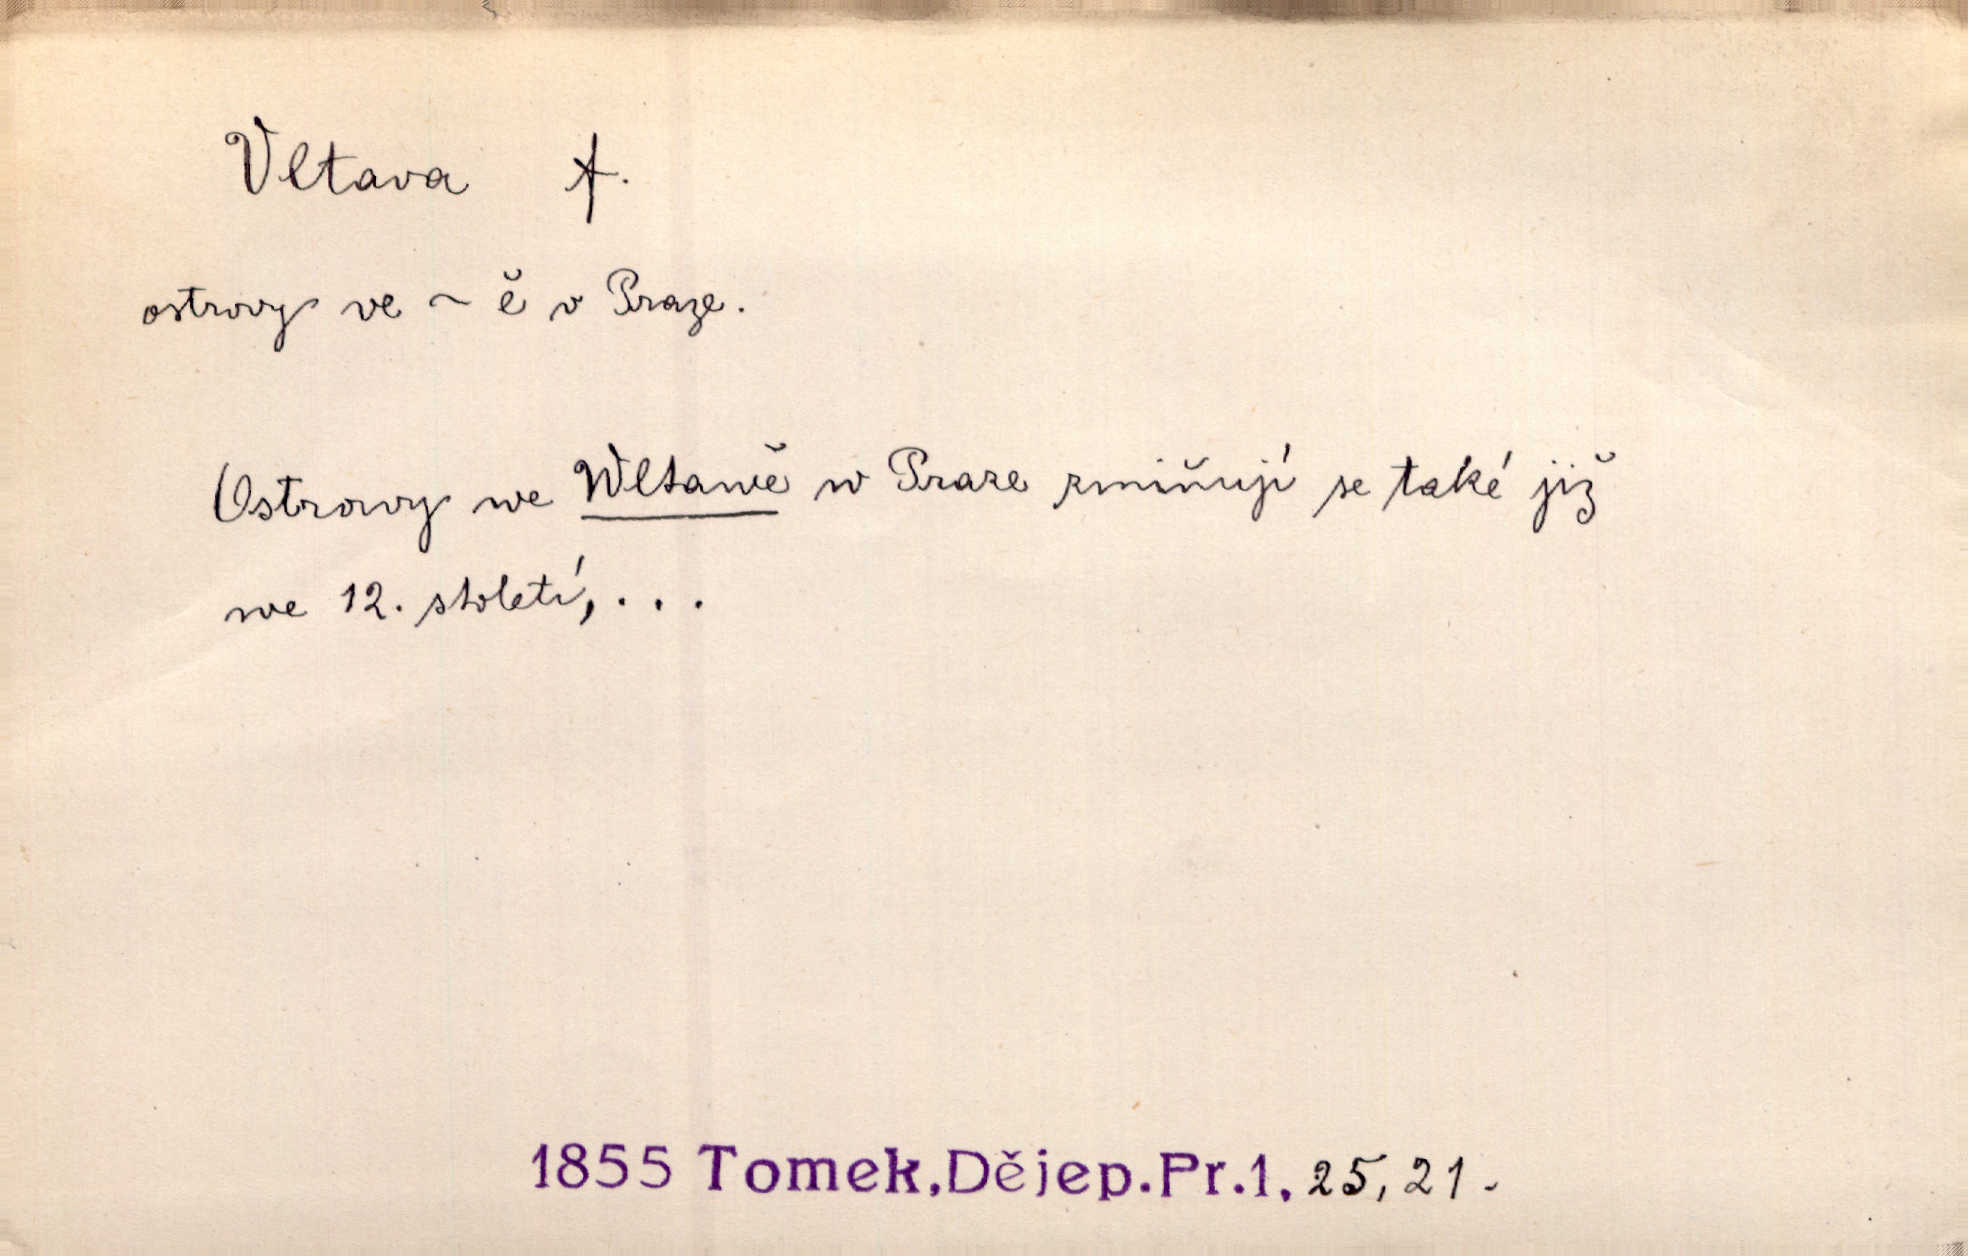 Vltava f.
ostrovy ve ~ě v Praze.
Ostrowy we Wltawě w Praze zmiňují se také již
we 12. století, . . .
1855 Tomek, Dějep. Pr. 1, 25, 21.